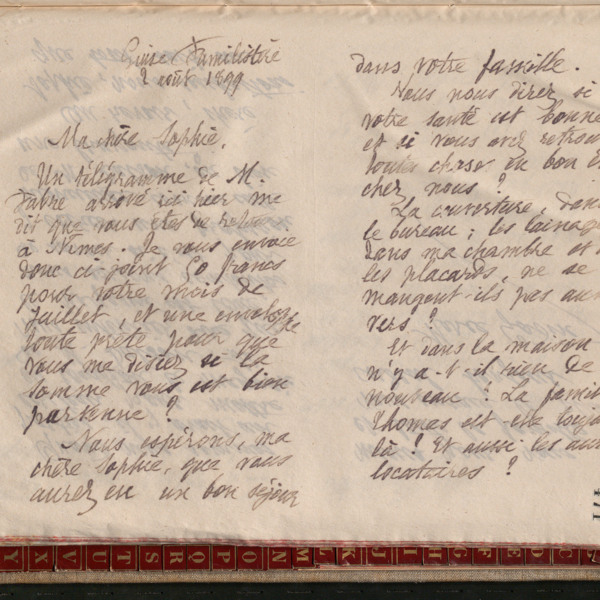 Guise Familistère
2 août 1899
Ma chère Sophie,
Un télégramme de M.
Fabre arrivé ici hier me
dit que vous êtes de retour
à Nîmes. Je vous envoie
donc ci-joint 50 francs
pour votre mois de
Juillet, et une enveloppe
toute prête pour que
vous me disiez si la
somme vous est bien
parvenue ?
Nous espérons, ma
chère Sophie, que vous
aurez eu un bon séjour
dans votre famille.
Vous nous direz si
votre santé est bonne
et si vous avez retrou
toutes choses en bon é
chez nous ?
La couverture, dans
le bureau ; les lainag
dans ma chambre et
les placards, ne se
mangent-ils pas aux
vers ?
Et dans la maison
n'y a-t-il rien de
nouveau ? La famil
Thomas est-elle toujo
là ? Et aussi les au
locataires ?
471
Y X V U T S R Q P O N M L K J I H G F E D C